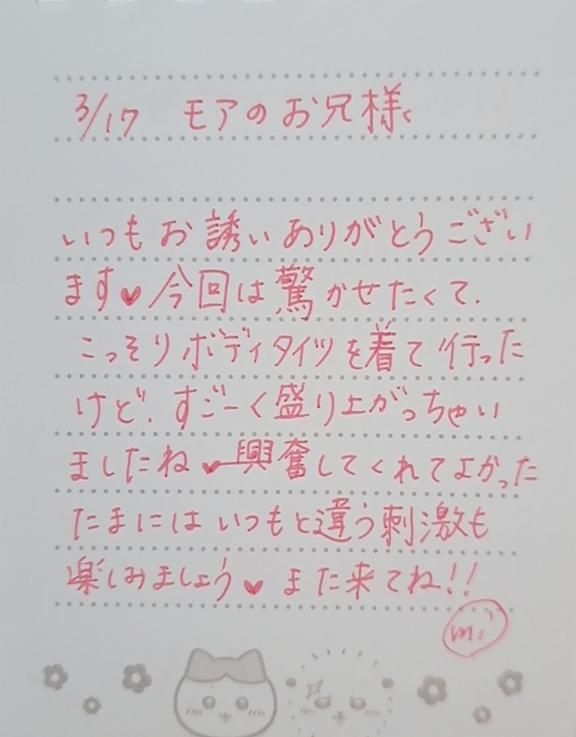 3/17 モアのお兄様
いつもお誘いありがとうござい
ます♥今回は驚かせたくて.
こっそりボディタイツを着て行った
けど.すご〜く盛り上がっちゃい
ましたね♥興奮してくれてよかった
たまにはいつもと違う刺激も
楽しみましょう♥また来てね!!
mi